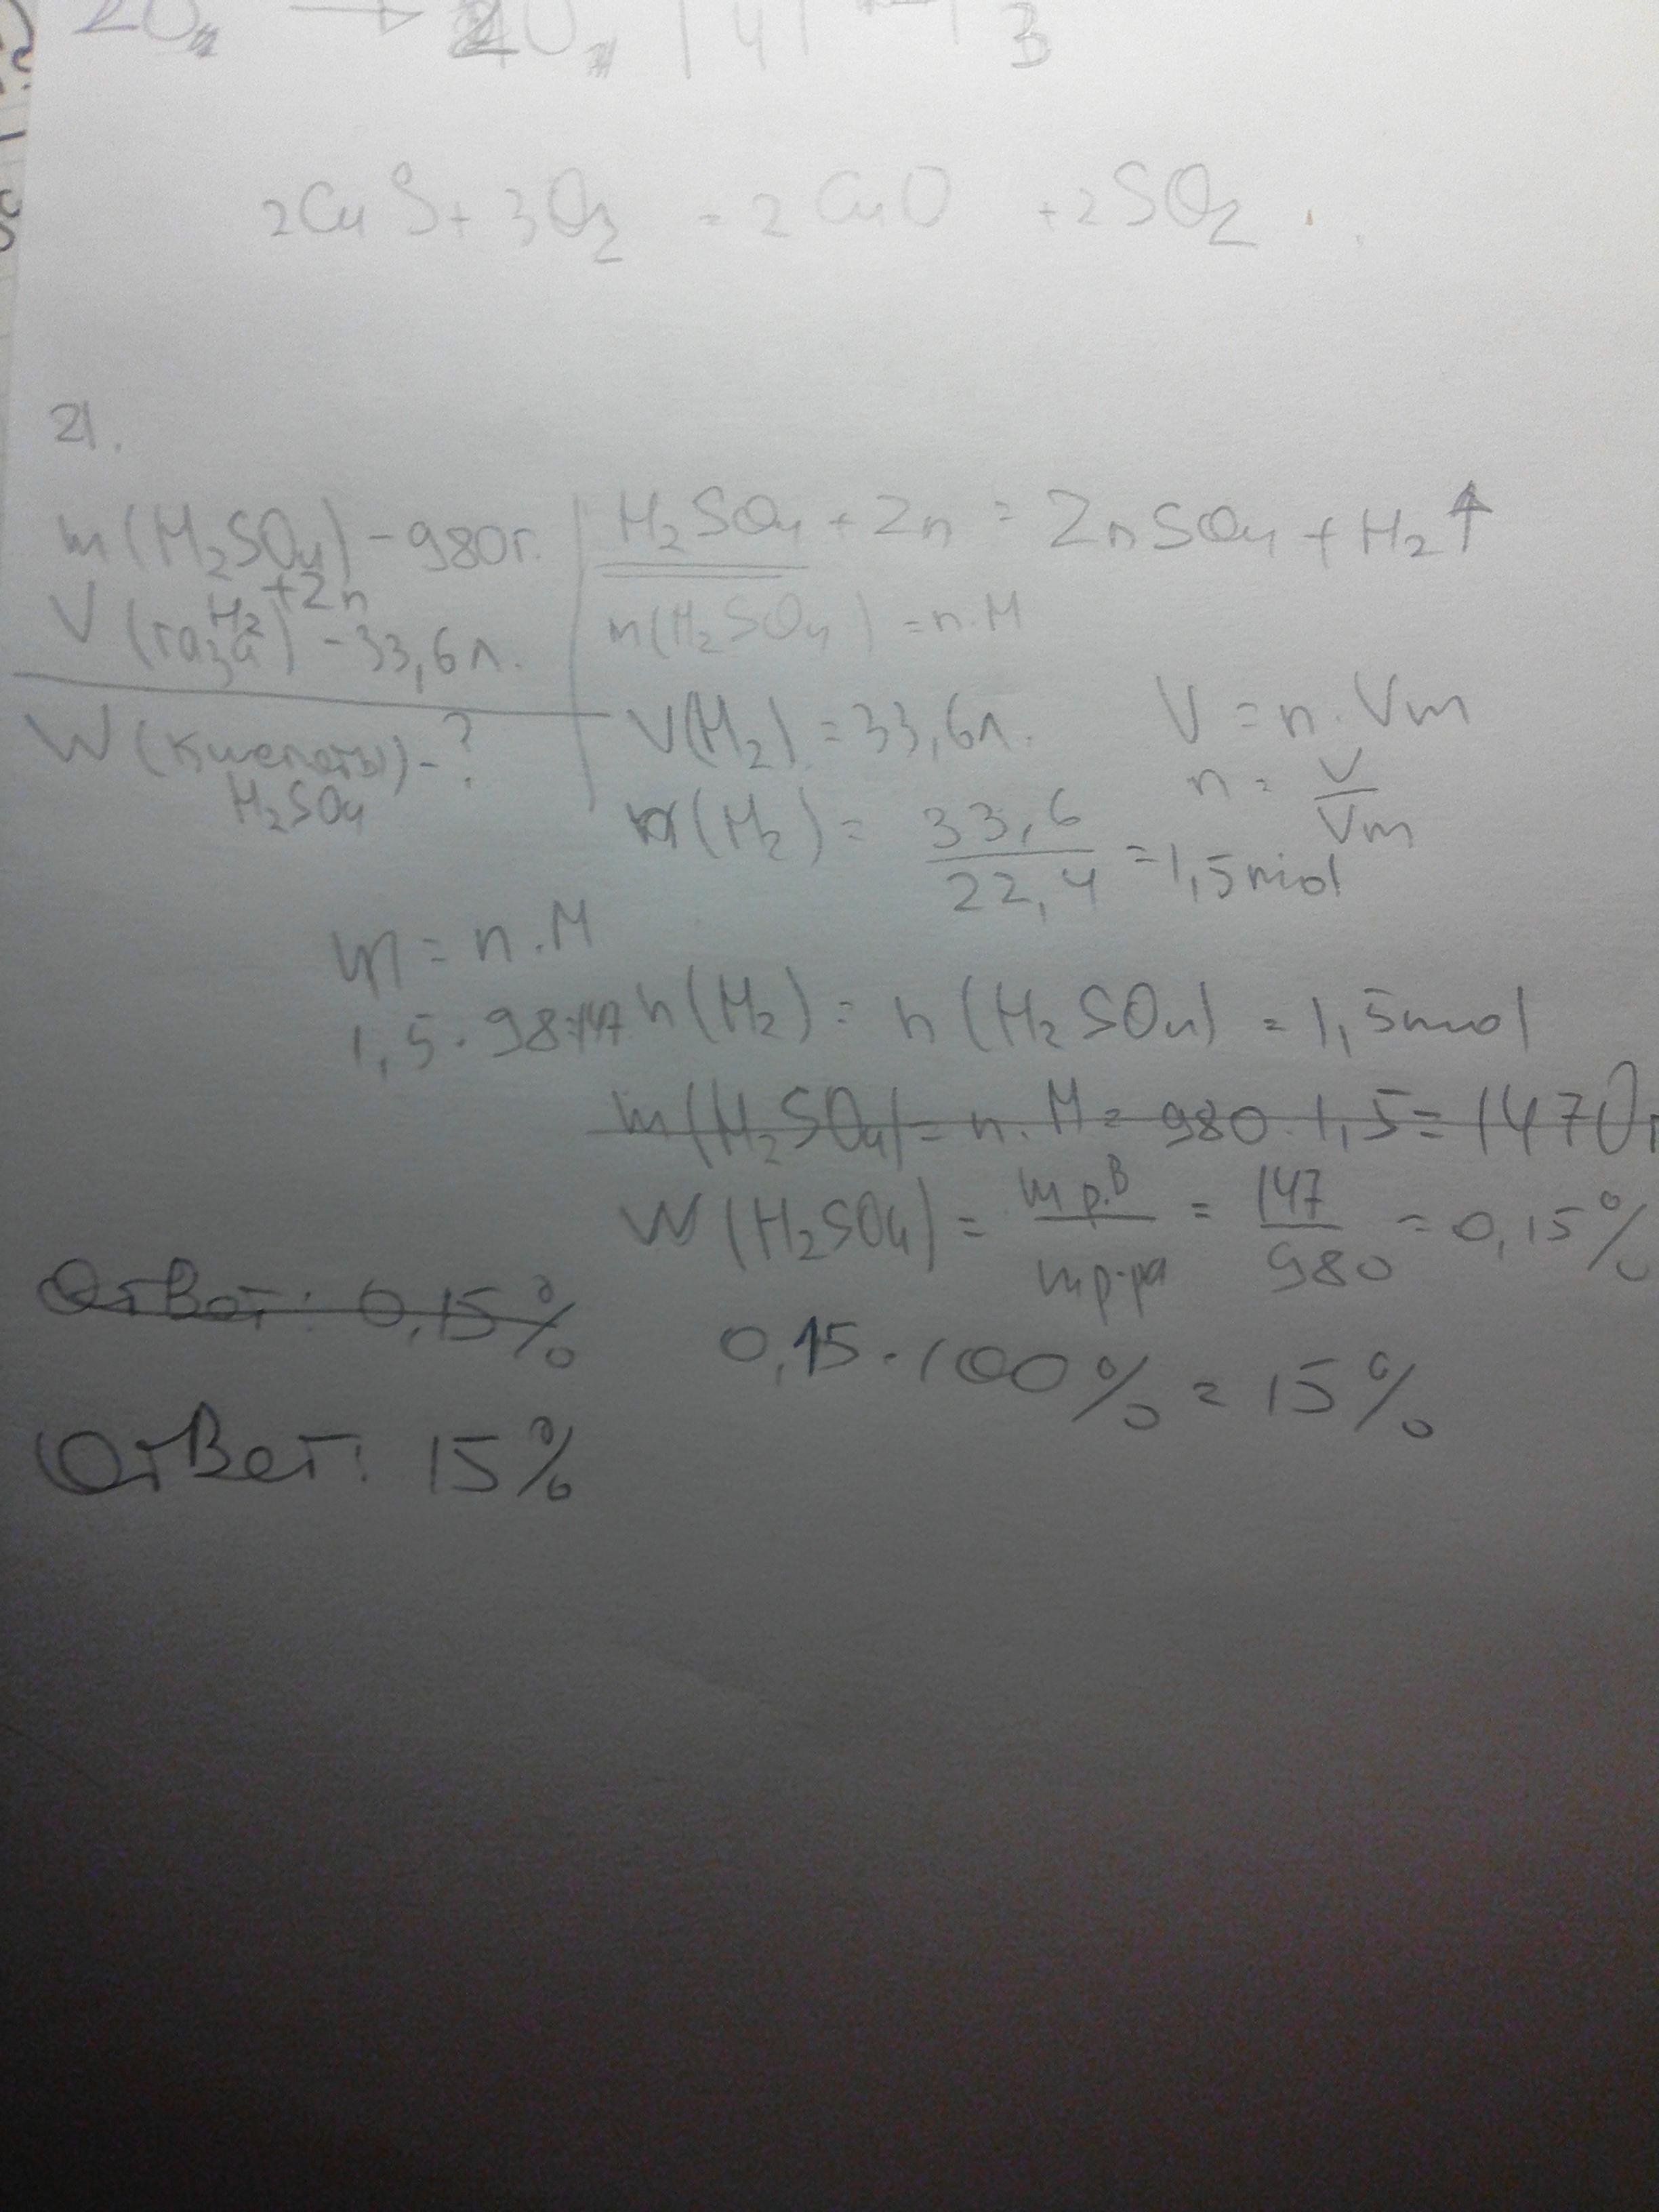 2CuS + 3O2 = 2CuO + 2SO2
21.
m(H2SO4) - 980г.
+Zn
V (газа) - 33,6л.
H2
W (кислоты) - ?
H2SO4
H2SO4 + Zn = ZnSO4 + H2↑
m(H2SO4) = n·M
V(H2) = 33,6л. V = n·Vm
n(H2) = 33,6/22,4 = 1,5mol n = V/Vm
m = n·M
1,5·98=147 n(H2) = n(H2SO4) = 1,5mol
m(H2SO4) = n·M = 980·1,5 = 1470г
W(H2SO4) = mр.в/mр-ра = 147/980 = 0,15%
Ответ: 0,15%
0,15·100% = 15%
Ответ: 15%